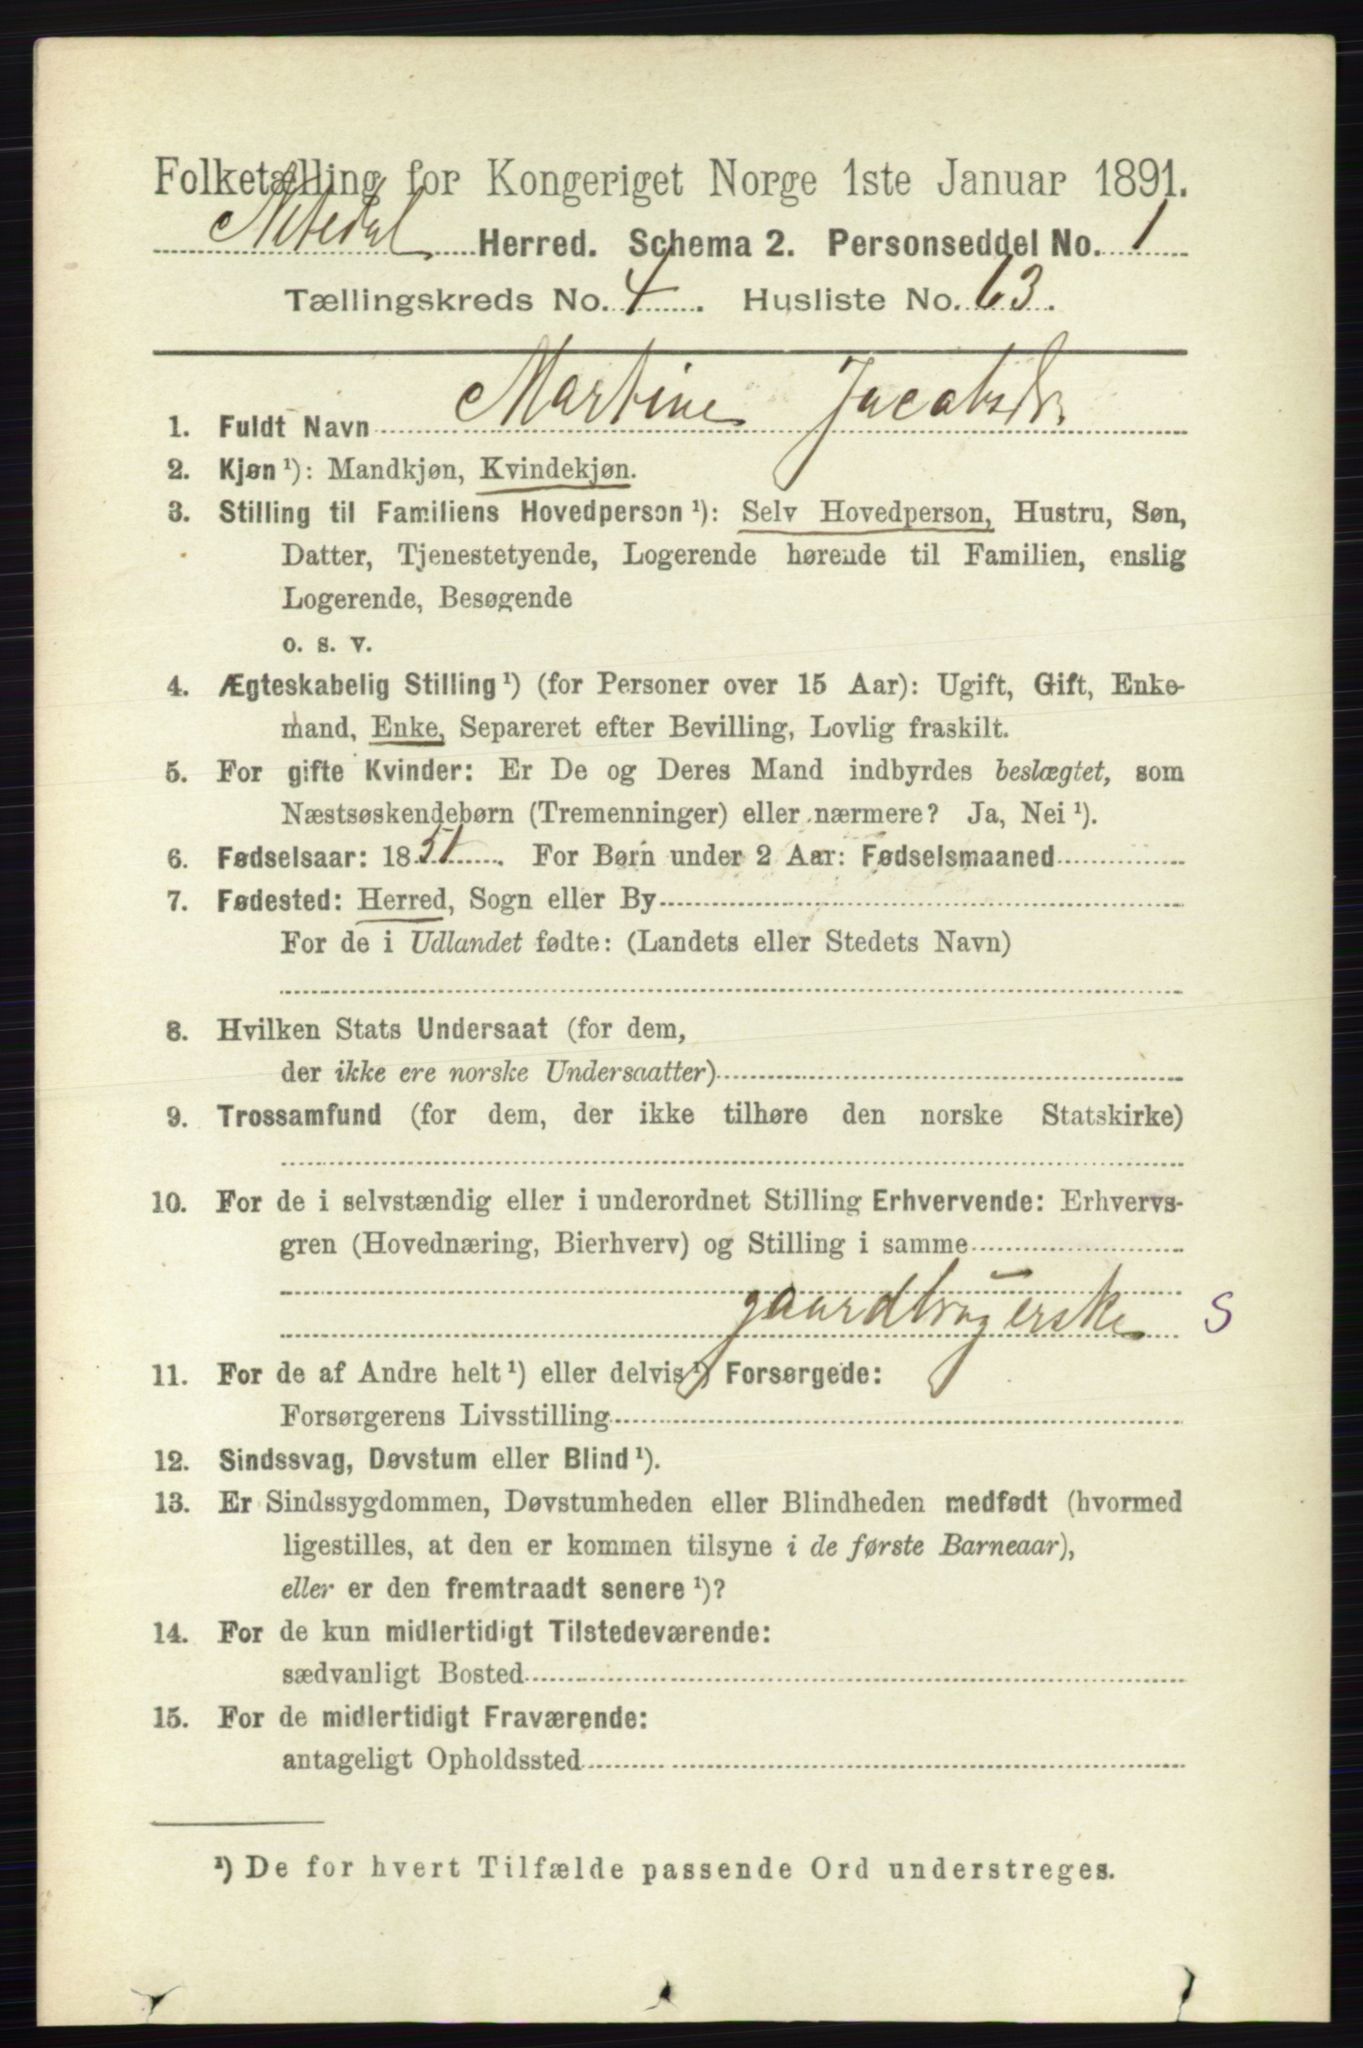 Folketælling for Kongeriget Norge 1ste Januar 1891.
Nitedal Herred. Schema 2. Personseddel No. 1
Tællingskreds No. 4. Husliste No. 63.
1. Fuldt Navn Martine Jacobsdr
2. Kjøn ¹): Mandkjøn, Kvindekjøn.
3. Stilling til Familiens Hovedperson ¹): Selv Hovedperson, Hustru, Søn,
Datter, Tjenestetyende, Logerende hørende til Familien, enslig
Logerende, Besøgende
o. s. v.
4. Ægteskabelig Stilling ¹) (for Personer over 15 Aar): Ugift, Gift, Enke-
mand, Enke, Separeret efter Bevilling, Lovlig fraskilt.
5. For gifte Kvinder: Er De og Deres Mand indbyrdes beslægtet, som
Næstsøskendebørn (Tremenninger) eller nærmere? Ja, Nei ¹).
6. Fødselsaar: 1851. For Børn under 2 Aar: Fødselsmaaned
7. Fødested: Herred, Sogn eller By
For de i Udlandet fødte: (Landets eller Stedets Navn)
8. Hvilken Stats Undersaat (for dem,
der ikke ere norske Undersaatter)
9. Trossamfund (for dem, der ikke tilhøre den norske Statskirke)
10. For de i selvstændig eller i underordnet Stilling Erhvervende: Erhvervs-
gren (Hovednæring, Bierhverv) og Stilling i samme
gaardbrugerske S
11. For de af Andre helt ¹) eller delvis ¹) Forsørgede:
Forsørgerens Livsstilling
12. Sindssvag, Døvstum eller Blind ¹).
13. Er Sindssygdommen, Døvstumheden eller Blindheden medfødt (hvormed
ligestilles, at den er kommen tilsyne i de første Barneaar),
eller er den fremtraadt senere ¹)?
14. For de kun midlertidigt Tilstedeværende:
sædvanligt Bosted
15. For de midlertidigt Fraværende:
antageligt Opholdssted
¹) De for hvert Tilfælde passende Ord understreges.